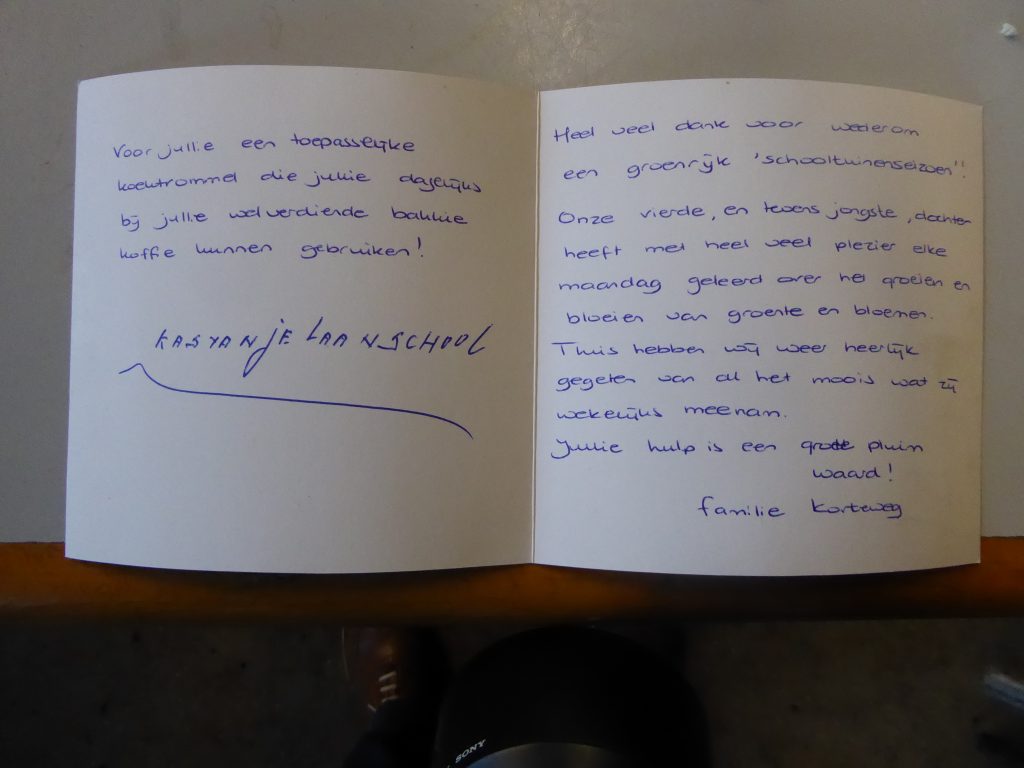 Voor jullie een toepasselijke
koektrommel die jullie dagelijks
bij jullie welverdiende bakkie
koffie kunnen gebruiken!
KASTANJELAANSCHOOL
Heel veel dank voor wederom
een groenrijk 'schooltuinenseizoen'!
Onze vierde, en tevens jongste, dochter
heeft met heel veel plezier elke
maandag geleerd over het groeien en
bloeien van groente en bloemen.
Thuis hebben wij weer heerlijk
gegeten van al het moois wat zij
wekelijks meenam.
Jullie hulp is een grote pluim
waard!
familie Korteweg
SONY